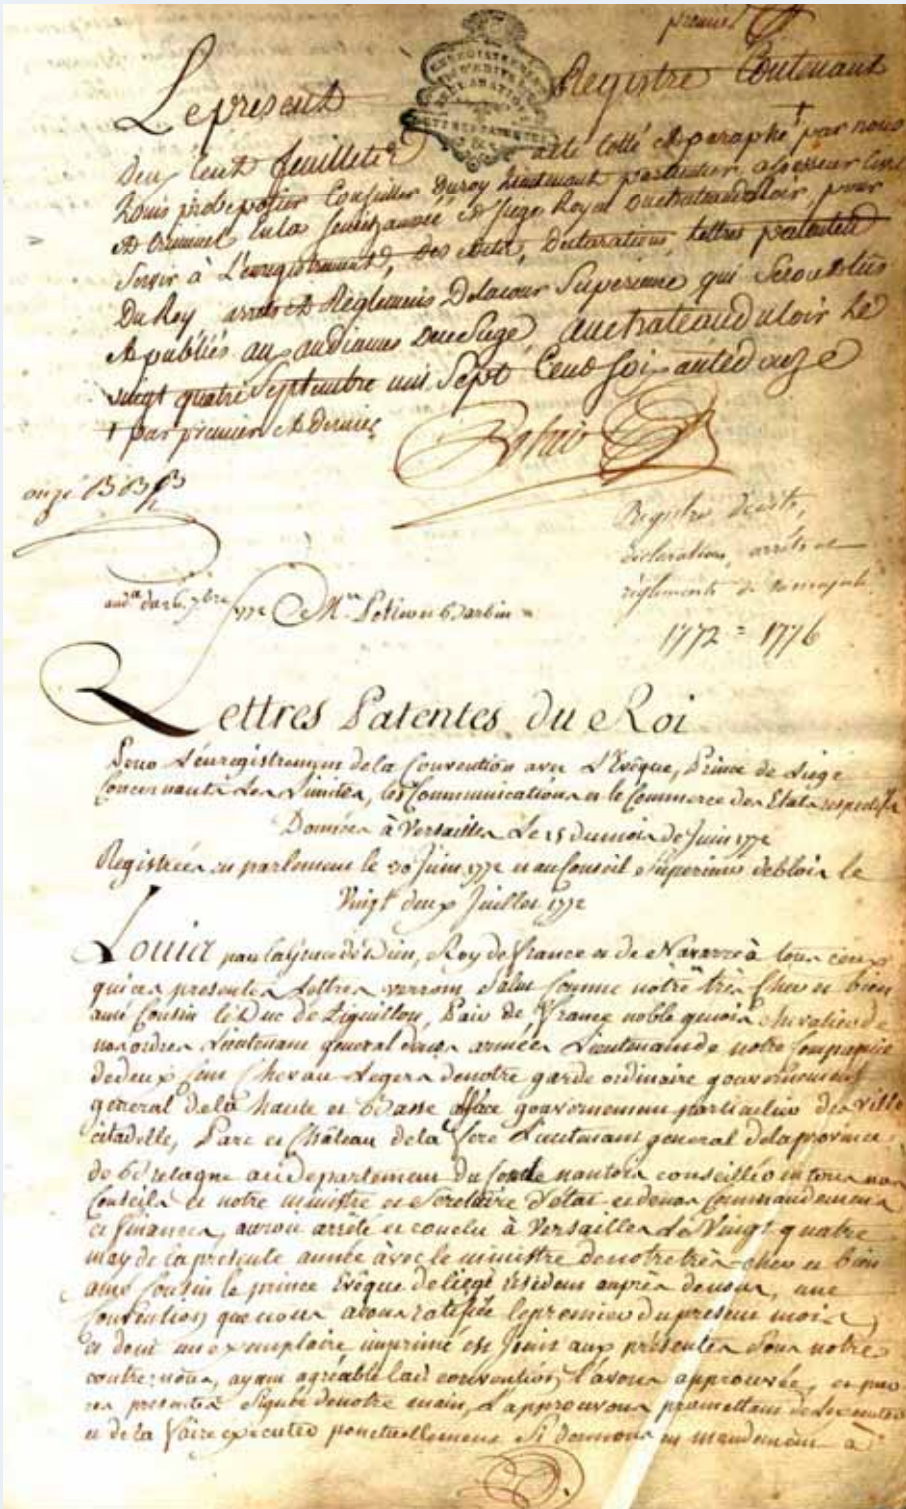 premier
Le present Registre Contenant
deux Cent feuillets a été Cotté et paraphé † par nous
Louis Conseiller du roy Lieutenant particulier, assesseur Civil
et Criminel en la Senechaussée et Siege Royal du chateauduloir, pour
Servir à L'enregistrement, des edits, declarations, lettres patentes
Du Roy arrets et Réglemens Delacour Superieure qui Seront Lus
et publiés aux audiances Duce Siege, auchateauduloir Le
vingt quatre Septembre mil Sept Cent Soixante douze
† par premier et Dernier
Registre d'edits,
déclarations, arrêts et
règlements de sa majesté
1772 = 1776
Lettres Patentes du Roi
Pour L'énregistrement de la Convention avec L'Evêque, Prince de Liege
Concernant Les Limites, les Communications et le Commerce des Etats respectifs
Données à Versailles Le 15 du mois de Juin 1772
Registrées en parlement le 30 Juin 1772 et au Conseil Superieur de blois le
Vingt deux Juillet 1772
Louis par la Grace de Dieu, Roy de france et de Navarre à tous ceux
qui ces presentes Lettres verront Salut Comme nôtre très Cher et bien
amé Cousin le Duc de Aiguillon, Pair de france noble genois chevalier de
nos ordres Lieutenant general de nos armées Lieutenant de notre Compagnie
de deux Cent Chevau Legers de notre garde ordinaire gouvernement
general de la haute et Basse alsace gouvernement particulier des ville
citadelle, Parc et Château de la fere Lieutenant general de la province
de Bretagne au departement du Comté nantois conseillé en tous nos
Conseils et notre ministre et Secretaire d'Etat et de nos Commandemens
et finances, auroit arrêté et conclu à Versailles le Vingt quatre
may de la presente année avec le ministre de notre très cher et bien
amé Cousin le prince Evêque de liege résident auprès de nous, une
Convention que nous avons ratifiée le premier du present mois,
et dont un exemplaire imprimé est Joint aux présentes Sous notre
contre, ayant agréable lad convention, l'avons approuvée, et par
ces presentes Signées de notre main, L'approuvons promettans de L'executer
et de la faire executer ponctuellement Si donnons en mandement à